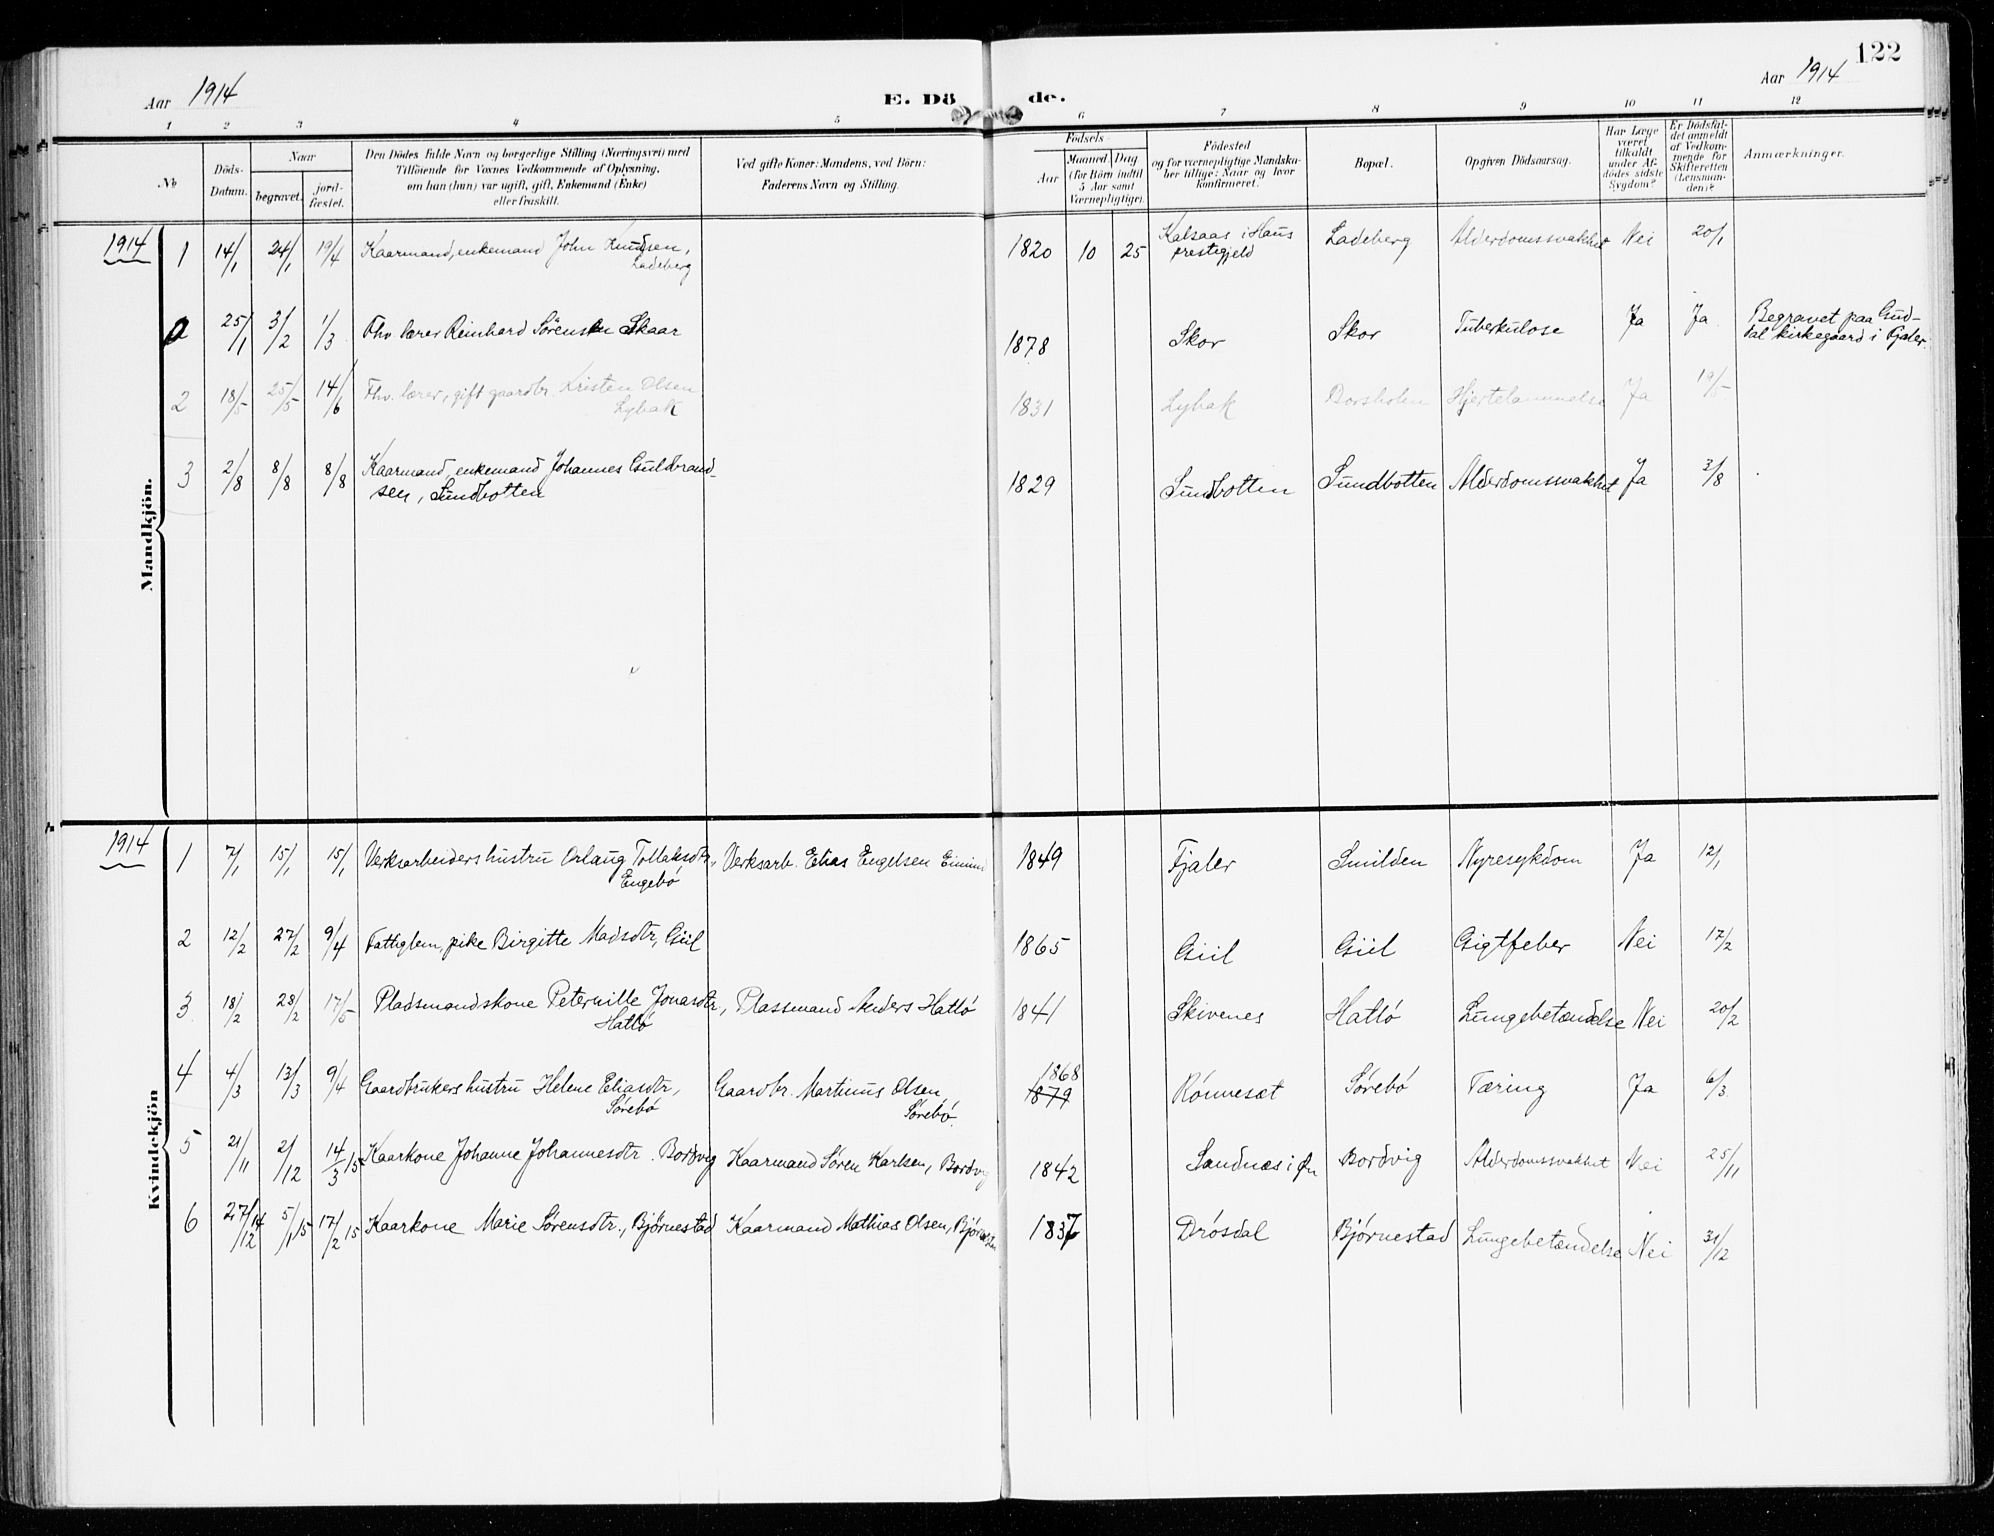 122
Aar 1914
E. Dö de.
Aar 1914
1 2 3 4 5 6 7 8 9 10 11 12
No
Döds-
Datum.
Naar
begravet.
jord-
fæstet.
Den Dödes fulde Navn og borgerlige Stilling (Næringsvei) med
Tilföiende for Voxnes Vedkommende af Oplysning,
om han (hun) var ugift, gift, Enkemand (Enke)
eller fraskilt.
Ved gifte Koner: Mandens, ved Börn:
Faderens Navn og Stilling.
Födsels-
Aar
Maaned Dag
(for Börn indtil
5 Aar samt
Værnepligtige).
Födested
og for værnepligtige Mandska-
ber tillige: Naar og hvor
konfirmeret.
Bopæl.
Opgiven Dödsaarsag.
Har Læge
været
tilkaldt
under Af-
dödes sidste
Sygdom?
Er Dödsfal-
det anmeldt
af Vedkom-
mende for
Skifteretten
(Lensman-
den)?
Anmærkninger.
Mandkjön.
1914
1 14/1 24/1 19/4 Kaarmand, enkemand John Knudsen,
Ladeberg
1820 10 25 Kalsaas i Haus
prestegjeld
Ladeberg Alderdomssvakhet Nei 20/1
0 25/1 3/2 1/3 Fhv. lærer Reinhard Sörensen Skaar 1878 Skor Skor Tuberkulose Ja Ja Begravet paa Gud-
dal kirkegaard i Fjaler.
2 18/5 25/5 14/6 Fhv. lærer, gift gaardbr. Kristen Olsen
Lybak
1831 Lybak Borsholm Hjertelammelse Ja 19/5
3 2/8 8/8 8/8 Kaarmand, enkemand Johannes Guldbrand-
sen, Sundbotten
1829 Sundbotten Sundbotten Alderdomssvakhet Ja 3/8
Kvindekjön
1914
1 7/1 15/1 15/1 Verksarbeiders hustru Orlaug Tollaksdtr.,
Engebø
Verksarb. Elias Engelsen 1849 Fjaler Smilden Nyresykdom Ja 12/1
2 12/2 27/2 9/4 Fattiglem, pike Birgitte Madsdtr, Giil 1865 Giil Giil Gigtfeber Nei 17/2
3 18/2 28/2 17/5 Pladsmandskone Peternille Jonasdtr,
Hatlø
Plassmand Anders Hatlø 1841 Skivenes Hatlø Lungebetændelse Nei 20/2
4 4/3 13/3 9/4 Gaardbrukers hustru Helene Eliasdtr,
Sørebø
Gaardbr. Martinus Olsen
Sørebø.
1868
1879
Rönnesæt Sørebø Tæring Ja 6/3
5 21/11 2/12 14/3 15 Kaarkone Johanne Johannesdtr. Bordvig Kaarmand Søren Karlsen, Bordvig 1842 Sandnæs i Bordvig Alderdomssvakhet Nei 25/11
6 27/12 14 5/1 15 17/2 15 Kaarkone Marie Sørensdtr., Bjørnestad Kaarmand Mathias Olsen, Bjørnestad 1837 Drøsdal Bjørnestad Lungebetændelse Nei 31/12